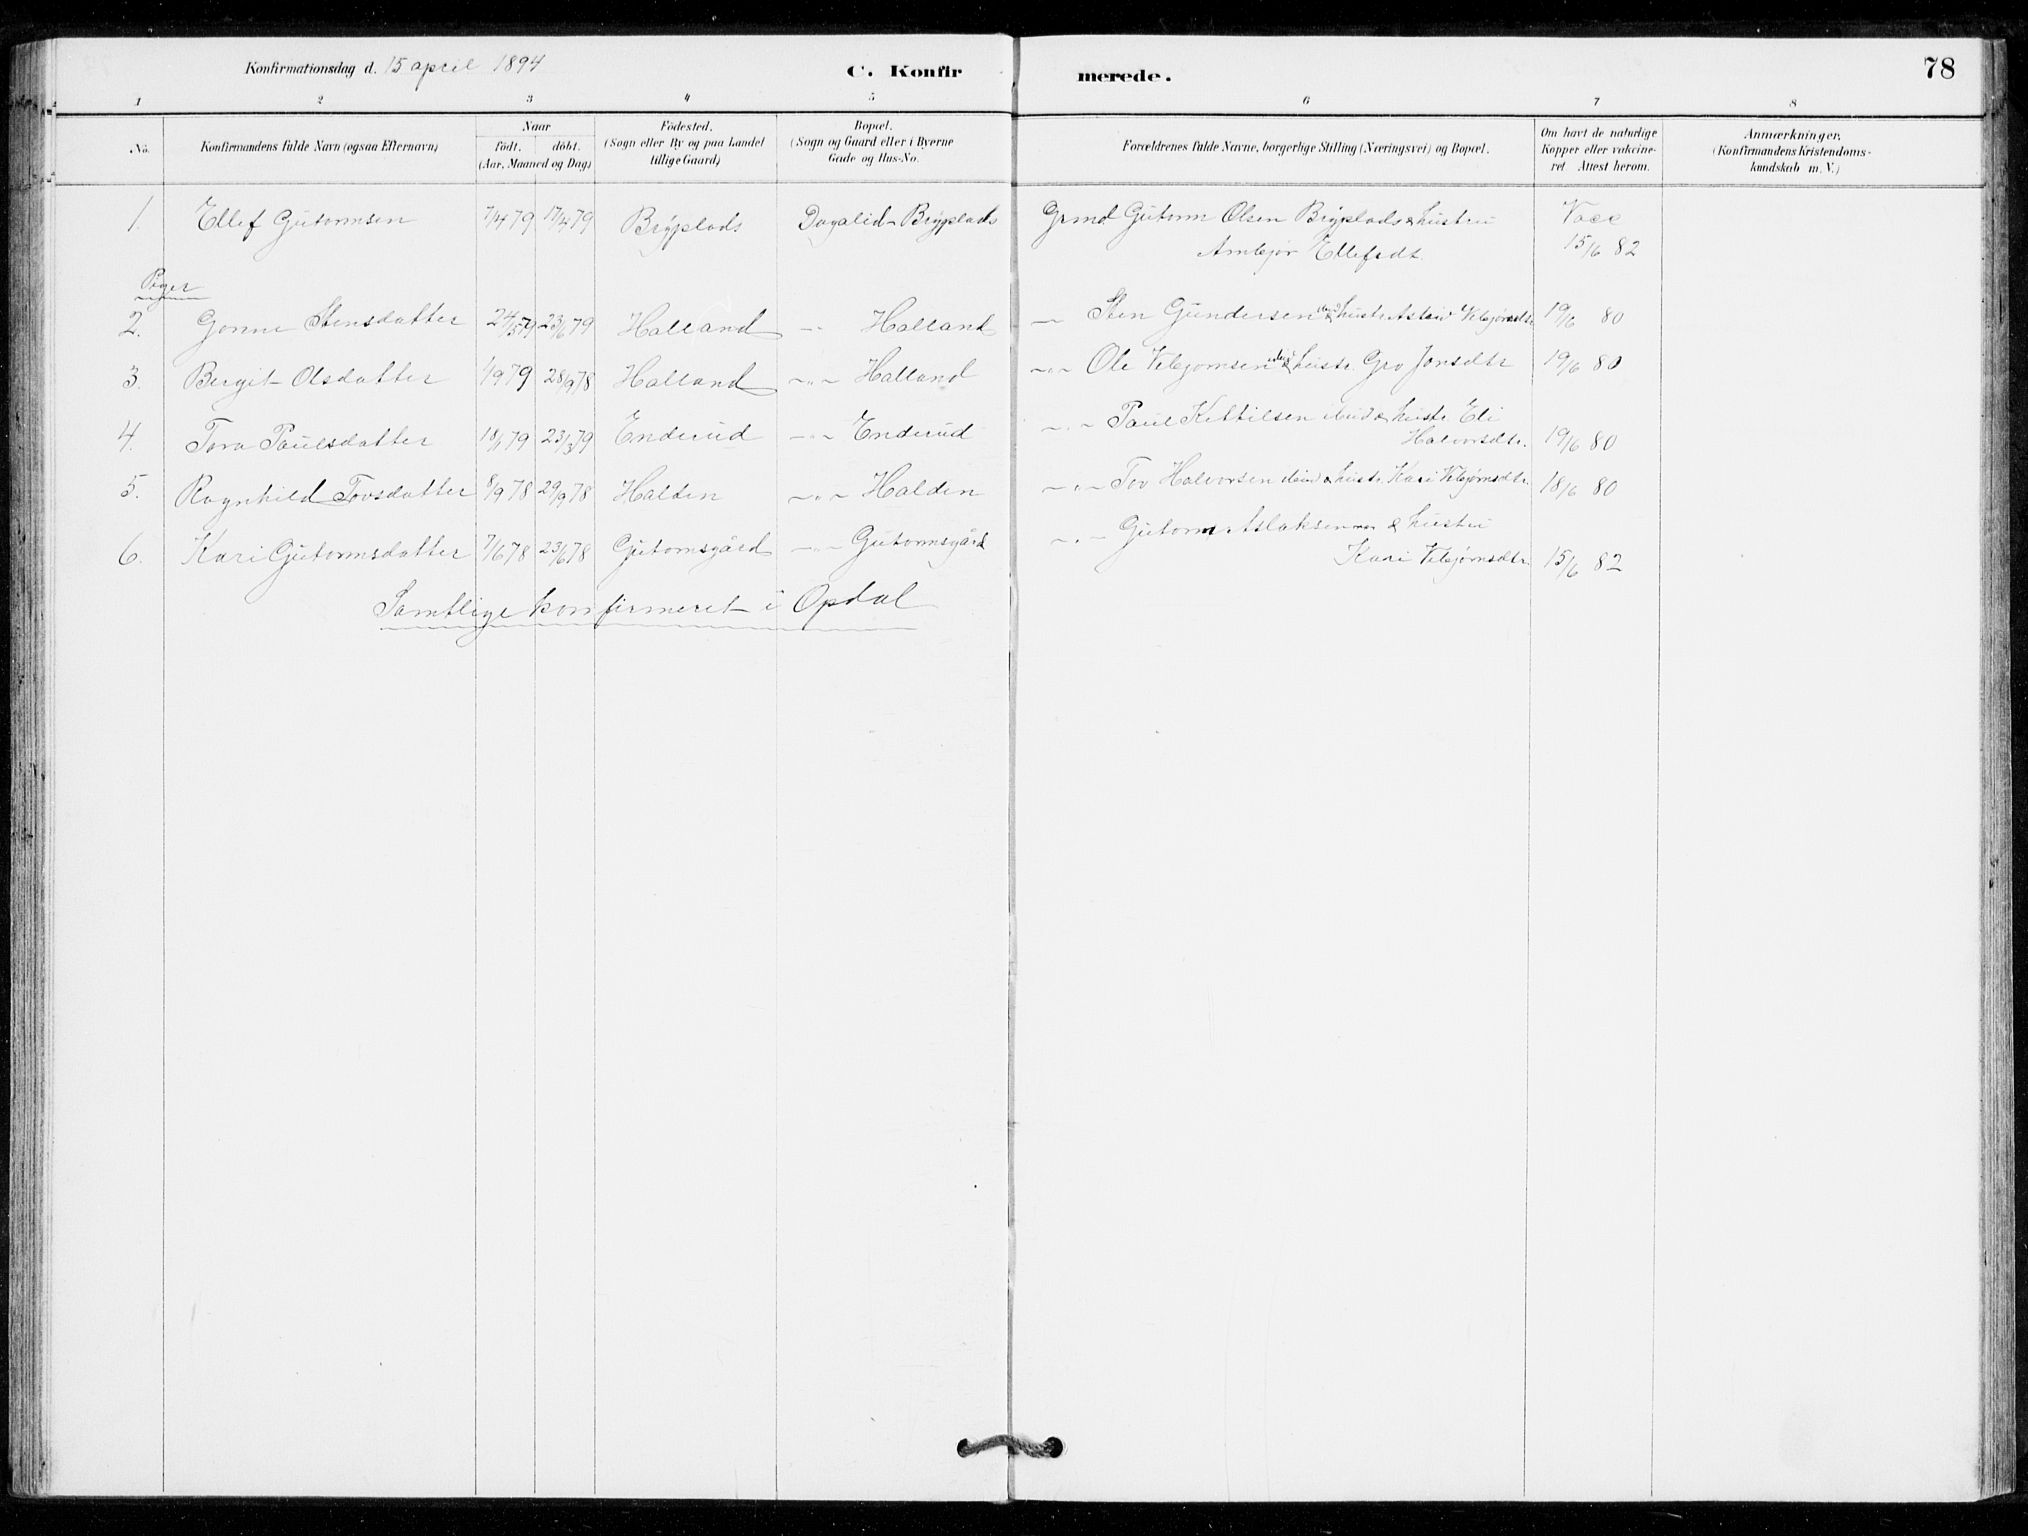 Konfirmationsdag d. 15 april 1894
C. Konfirmerede.
78
1 2 3 4 5 6 7 8
No.
Konfirmandens fulde Navn (ogsaa Efternavn)
Naar
født. døbt.
(Aar, Maaned og Dag)
Fødested.
(Sogn eller By og paa Landet
tillige Gaard)
Bopæl.
(Sogn og Gaard eller i Byerne
Gade og Hus-No.
Forældrenes fulde Navne, borgerlige Stilling (Næringsvei) og Bopæl.
Om havt de naturlige
Kopper eller vakcine-
ret Attest herom.
Anmærkninger.
(Konfirmandens Kristendoms-
kundskab m. V.)
1. Ellef Gutormsen 7/4 79 17/4 79 Brýplads Dagalid Brýplads Grmd Gutorm Olsen Brýplads & hustru Vacc
Ambjør Ellefsdt. 15/6 82
Piger
2. Gonne Stensdatter 24/5 79 23/6 79 Halland -"- Halland — Sten Gundersen ibid & hustr. Astrid Vebjørnsdtr 19/6 80
3. Bergit Olsdatter 1/9 79 28/9 78 Halland -"- Halland -"- Ole Vebjornsen ibid & hustr. Gro Jonsdtr 19/6 80
4. Tora Paulsdatter 18/1 79 23/3 79 Enderud -"- Enderud -"- Paul Kittilsen ibid & hustr. Eli
Halvorsdtr. 19/6 80
5. Ragnhild Tovsdatter 8/9 78 29/9 78 Halden -"- Halden -"- Tov Halvorsen ibid & hustr. Kari Vebjørnsdtr. 18/6 80
6. Kari Gutormsdatter 7/6 78 23/6 78 Gutormsgård -"- Gutormsgård -"- Gutorm Aslaksen & hustru
Kari Vebjørnsdtr. 15/6 82
Samtlige konfirmeret i Opdal